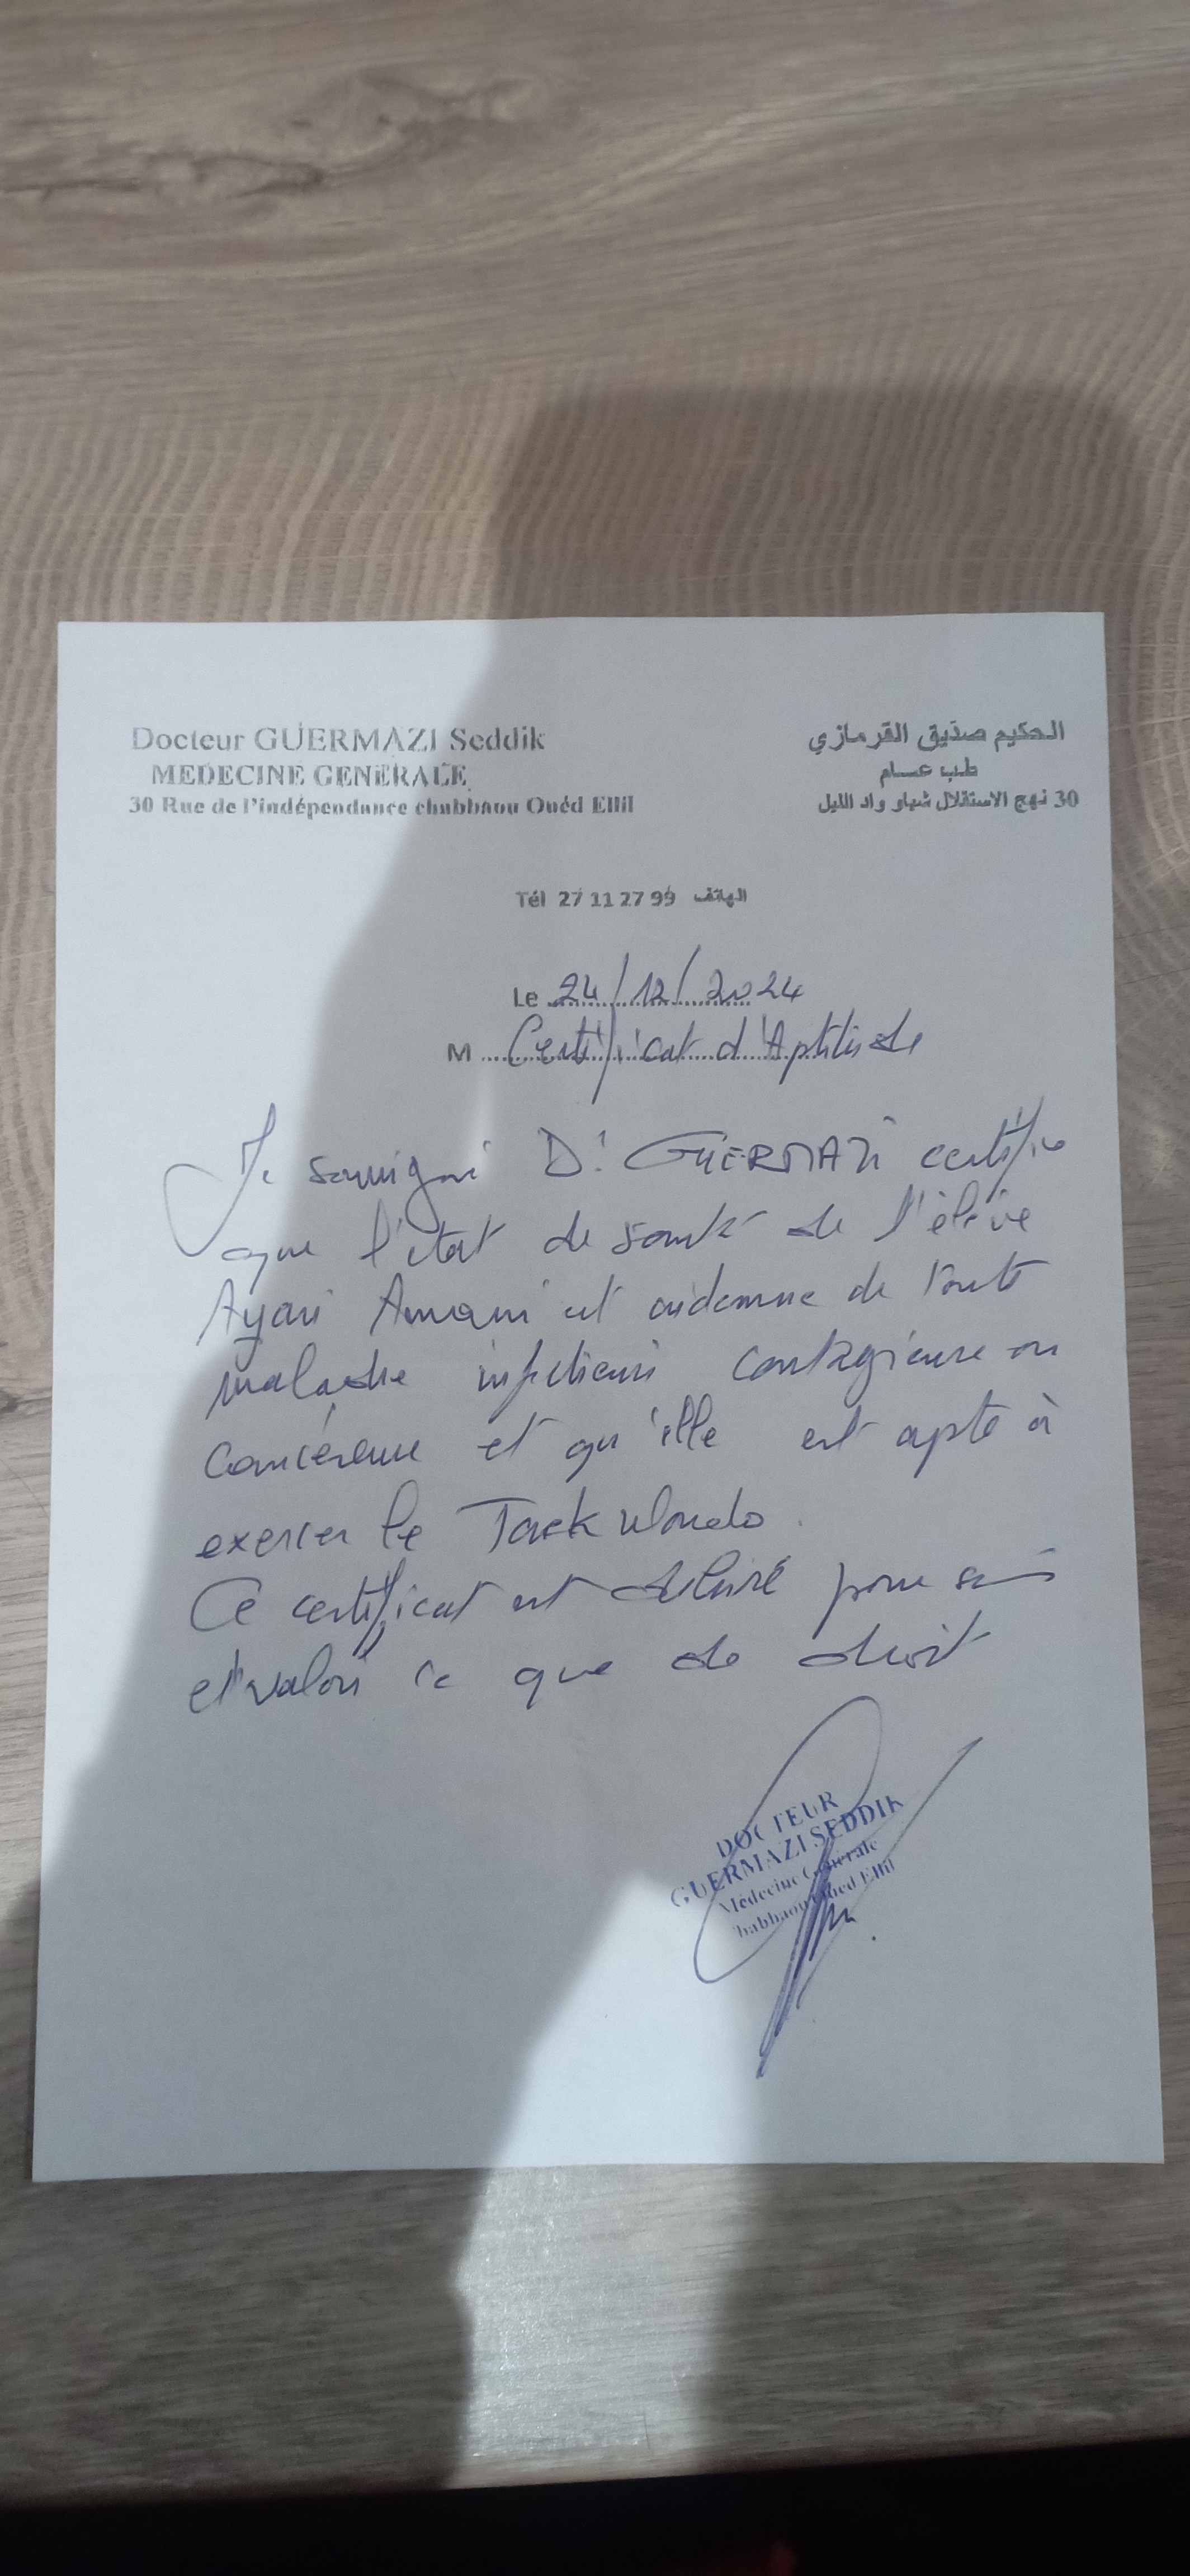 Docteur GUERMAZI Seddik
MEDECINE GENERALE
30 Rue de l'indépendance chabbaou Ouéd Ellil
الحكيم صديق القرمازي
طب عام
30 نهج الاستقلال شباو واد الليل
Tél 27 11 27 99 الهاتف
Le 24/12/2024
M Certificat d'Aptitude
Je soussigné Dr GUERMAZI certifie
que l'état de santé de l'élève
Ayari Amani est indemne de toute
maladie infectieuse contagieuse ou
cancéreuse et qu'elle est apte à
exercer le Taekwondo.
Ce certificat est délivré pour servir
et valoir ce que de droit
DOCTEUR
GUERMAZI SEDDIK
Médecine Générale
Chabbaou Oued Ellil